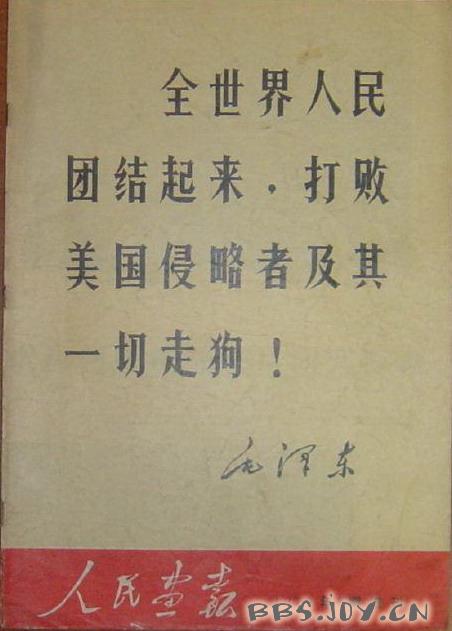 全世界人民
团结起来，打败
美国侵略者及其
一切走狗！
毛泽东
人民画报
BBS.JOY.CN